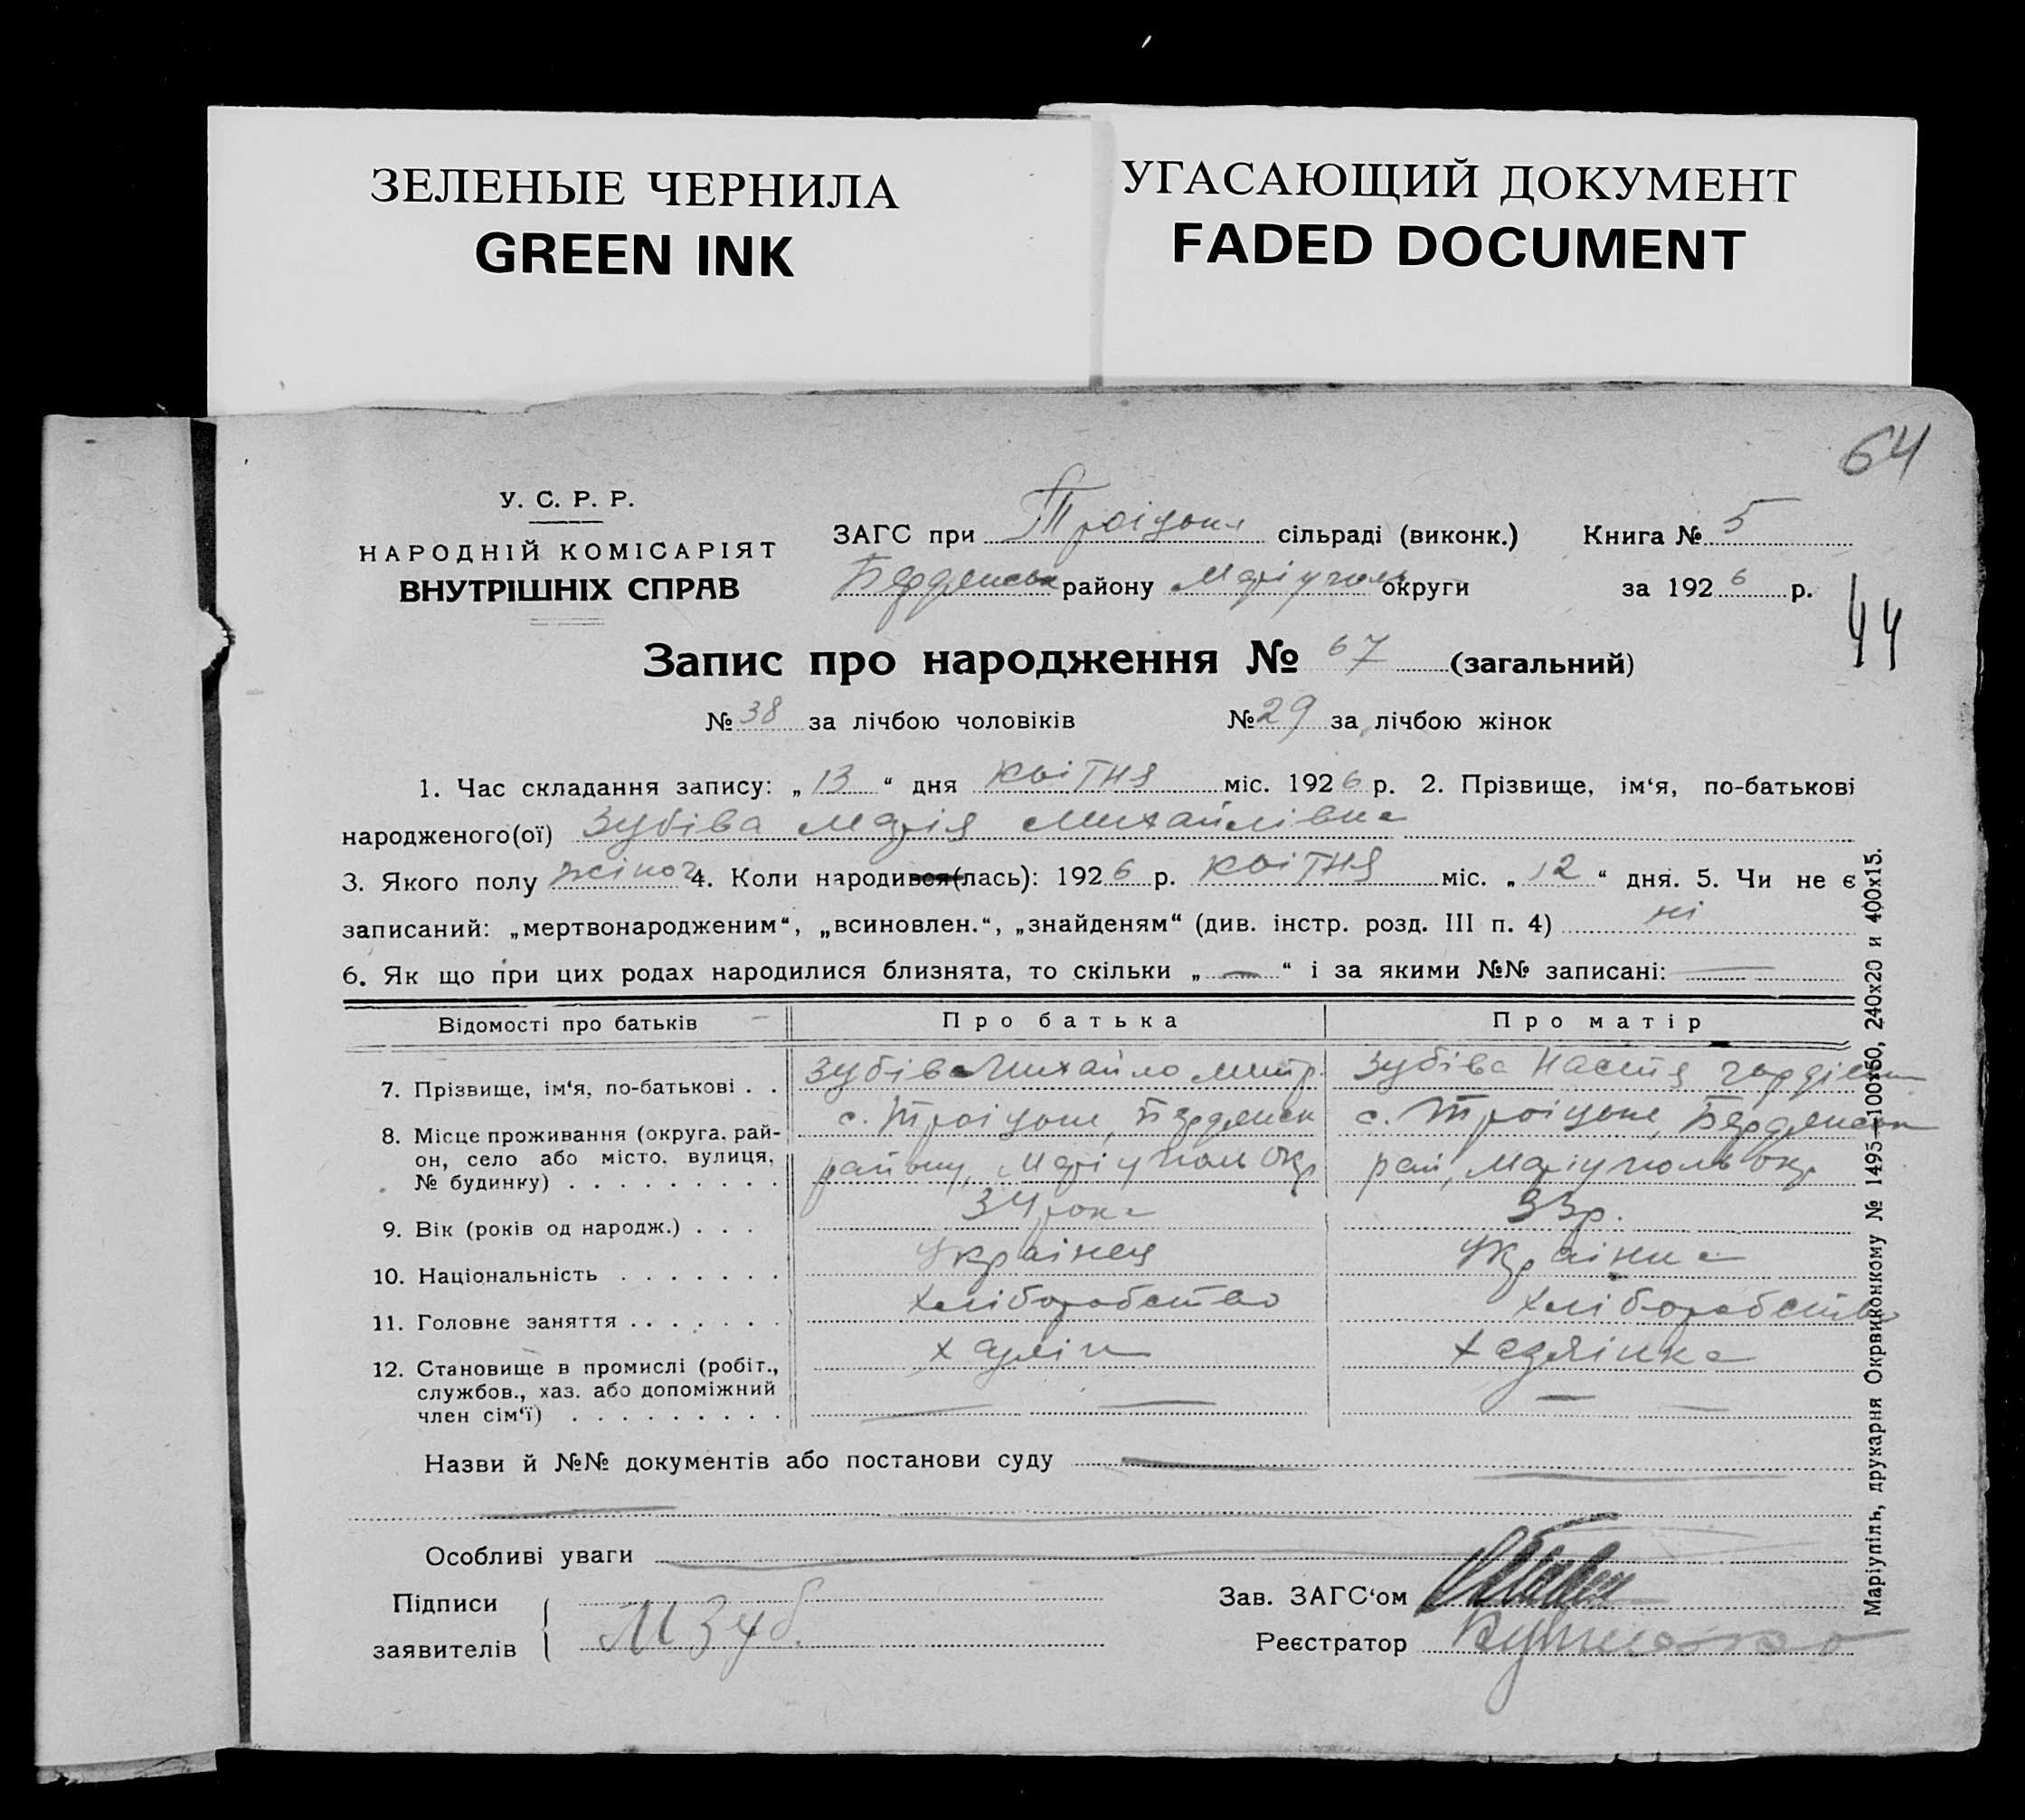 ЗЕЛЕНЫЕ ЧЕРНИЛА
GREEN INK
УГАСАЮЩИЙ ДОКУМЕНТ
FADED DOCUMENT
64
У. С. Р. Р.
НАРОДНІЙ КОМІСАРІЯТ
ВНУТРІШНІХ СПРАВ
ЗАГС при Троіцьк сільраді (виконк.) Книга № 5
Бердянськ району Маріуполь округи за 1926 р.
44
Запис про народження № 67 (загальний)
№ 38 за лічбою чоловіків № 29 за лічбою жінок
1. Час складання запису: „ 13 “ дня квітня міс. 1926 р. 2. Прізвище, ім‘я, по-батькові
народженого(ої) Зубіва Марія Михайлівна
3. Якого полу жіноч 4. Коли народився(лась): 1926 р. квітня міс. „ 12 “ дня. 5. Чи не є
записаний: „мертвонародженим“, „всиновлен.“, „знайденям“ (див. інстр. розд. III п. 4) ні
6. Як що при цих родах народилися близнята, то скільки „ — “ і за якими №№ записані: —
Відомості про батьків Про батька Про матір
7. Прізвище, ім‘я, по-батькові . . Зубів Михайло Митр. Зубіва Настя
8. Місце проживання (округа, рай- с. Троіцьке, Бердянськ с. Троіцьке, Бердянськ
он, село або місто, вулиця, району, Маріуполь окр рай, Маріуполь окр
№ будинку) . . . . . . . . .
9. Вік (років од народж.) . . . 34 рока 33 р.
10. Національність . . . . . . . Украінец Украінка
11. Головне заняття . . . . . . . Хліборобство Хліборобство
12. Становище в промислі (робіт., хазяін хазяінка
службов., хаз. або допоміжний
член сім‘ї) . . . . . . . . . — — — —
Назви й №№ документів або постанови суду —
Особливі уваги
Підписи
заявителів М Зуб.
Зав. ЗАГС‘ом
Реєстратор
Маріупіль, друкарня Окрвиконкому № 1495—100x50, 240x20 и 400x15.